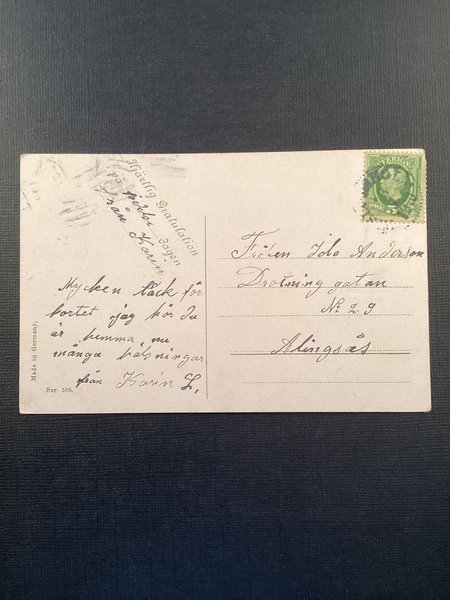 Hjärtlig Gratulation
på
dagen
från Karin
Mycken tack för
kortet jag hör du
är hemma nu
många hälsningar
från Karin L,
Made in Germany.
Ser. 505.
SVERIGE
ÖRE 5
Fröken Ida Anderson
Drotning gatan
No 29
Alingsås